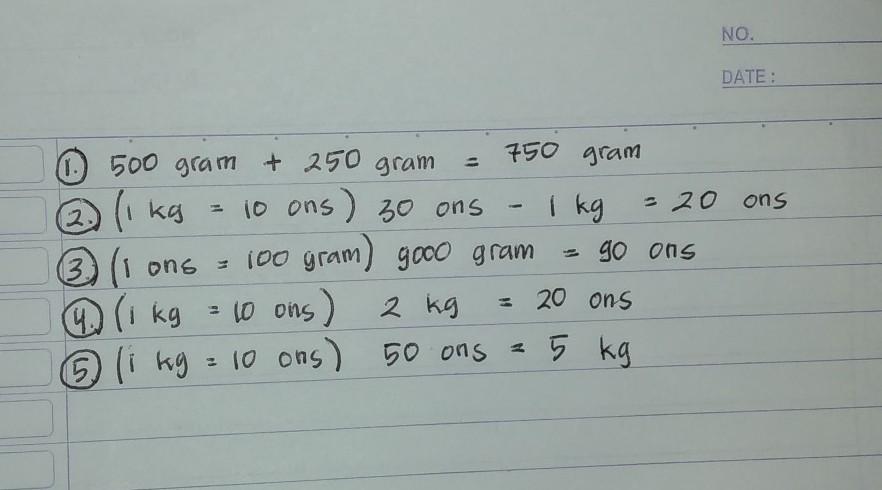 NO.
DATE :
1. 500 gram + 250 gram = 750 gram
2. (1 kg = 10 ons) 30 ons - 1 kg = 20 ons
3. (1 ons = 100 gram) 9000 gram = 90 ons
4. (1 kg = 10 ons) 2 kg = 20 ons
5. (1 kg = 10 ons) 50 ons = 5 kg